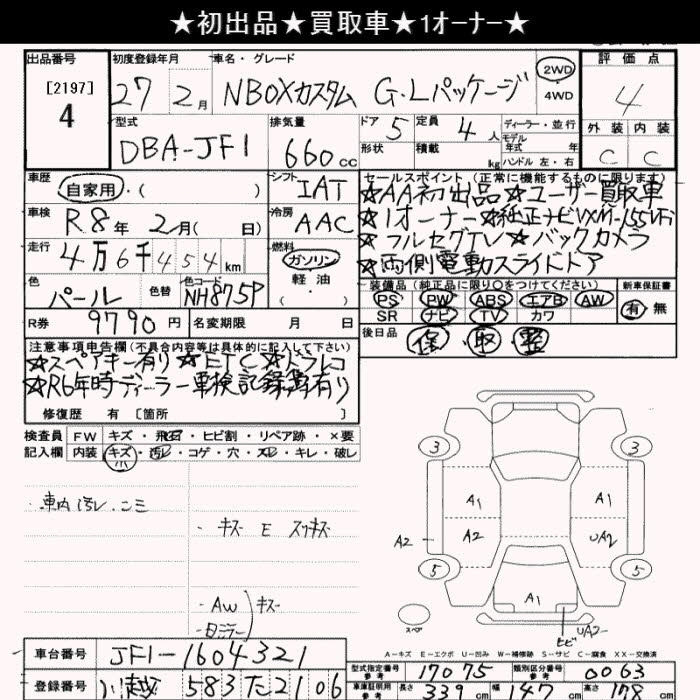 ★初出品★買取車★1オーナー★
出品番号 初度登録年月 車名・グレード 評価点
[2197]
4
27 2月 NBOXカスタム G・Lパッケージ 2WD 4WD 4
型式 排気量 ドア 5 定員 4人 ディーラー・並行 外装 内装
DBA-JF1 660cc 形状 積載 kg モデル 年式 年 ハンドル 左・右 C C
車歴 自家用・( ) シフト IAT セールスポイント (正常に機能するものに限ります)
★AA初出品★ユーザー買取車
車検 R8年 2月( 日) 冷房 AAC ★1オーナー★純正ナビVXM-155VFi
走行 4万6千454km 燃料 ガソリン 軽油 ( )
★フルセグTV★バックカメラ
★両側電動スライドドア
色 パール 色替 色コード NH875P
装備品 (純正品に限り○をつけてください) 新車保証書
PS PW ABS エアB AW 有・無
SR ナビ TV カワ
R券 9790円 名変期限 月 日 後日品 保・取・整
注意事項申告欄 (不具合内容等は具体的に記入して下さい)
★スペアキー有り★ETC★ドラレコ
★R6年時ディーラー車検記録簿有り
修復歴 有 [箇所 ]
検査員 FW キズ・飛石・ヒビ割・リペア跡・×要
記入欄 内装 キズ・汚レ・コゲ・穴・スレ・キレ・破レ
小
・車内汚レ、コミ
・キズ E スリキズ
・AW キズ
・日ラー
3 3
A1 A1
A2 A2 UA2
5 5
A1
スペア ヒビ UA2
A-キズ E-エクボ U-凹み W-補修跡 S-サビ C-腐食 XX-交換済
車台番号 JF1-1604321
型式指定番号 参考 17075 類別区分番号 参考 0063
登録番号 川越 583た2106
車庫証明用 参考 長さ 339cm 幅 147cm 高さ 178cm